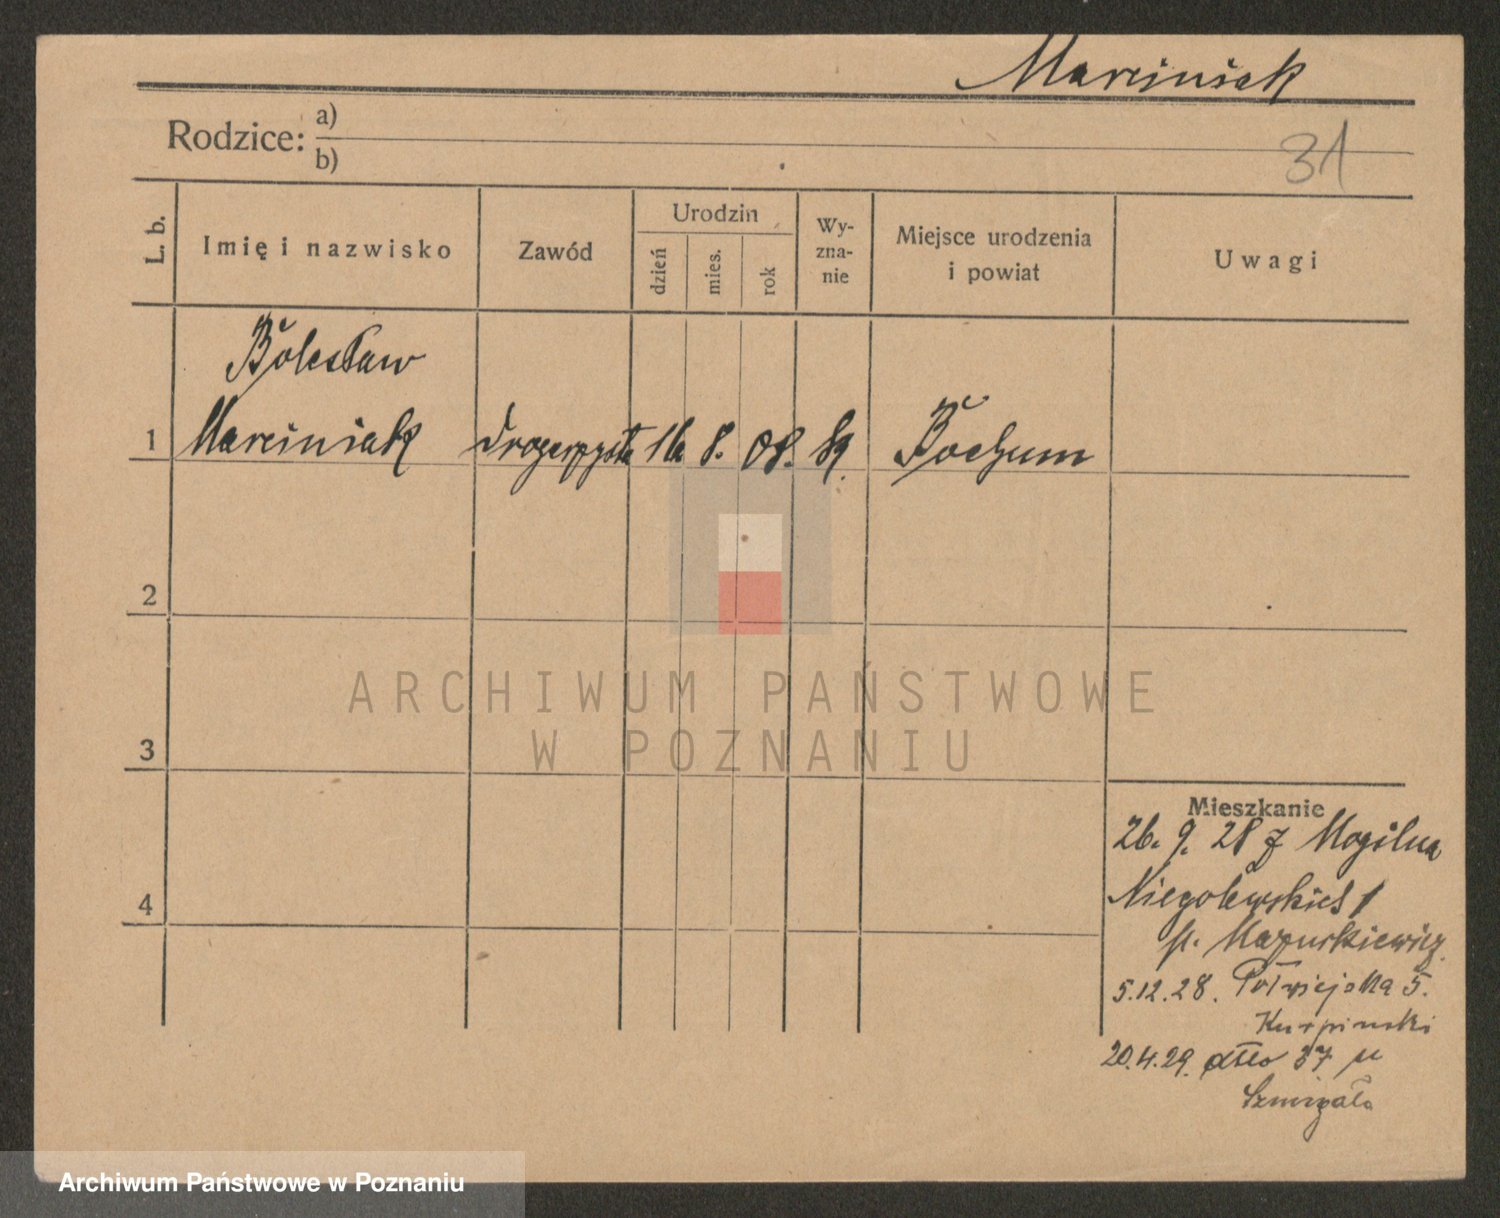 Marciniak
Rodzice: a)
b)
31
L. b.
Imię i nazwisko
Zawód
Urodzin
dzień
mies.
rok
Wy-
zna-
nie
Miejsce urodzenia
i powiat
Uwagi
Bolesław
1 Marciniak drogerzysta 16 8. 08. Bochum
2
3
4
Mieszkanie
26. 9. 28 z Mogilna
Niegolewskich 1
p. Mazurkiewicz
5.12.28. Półwiejska 5.
Kurpinski
20.4.29. dtto 37 u
ARCHIWUM PAŃSTWOWE
W POZNANIU
Archiwum Państwowe w Poznaniu